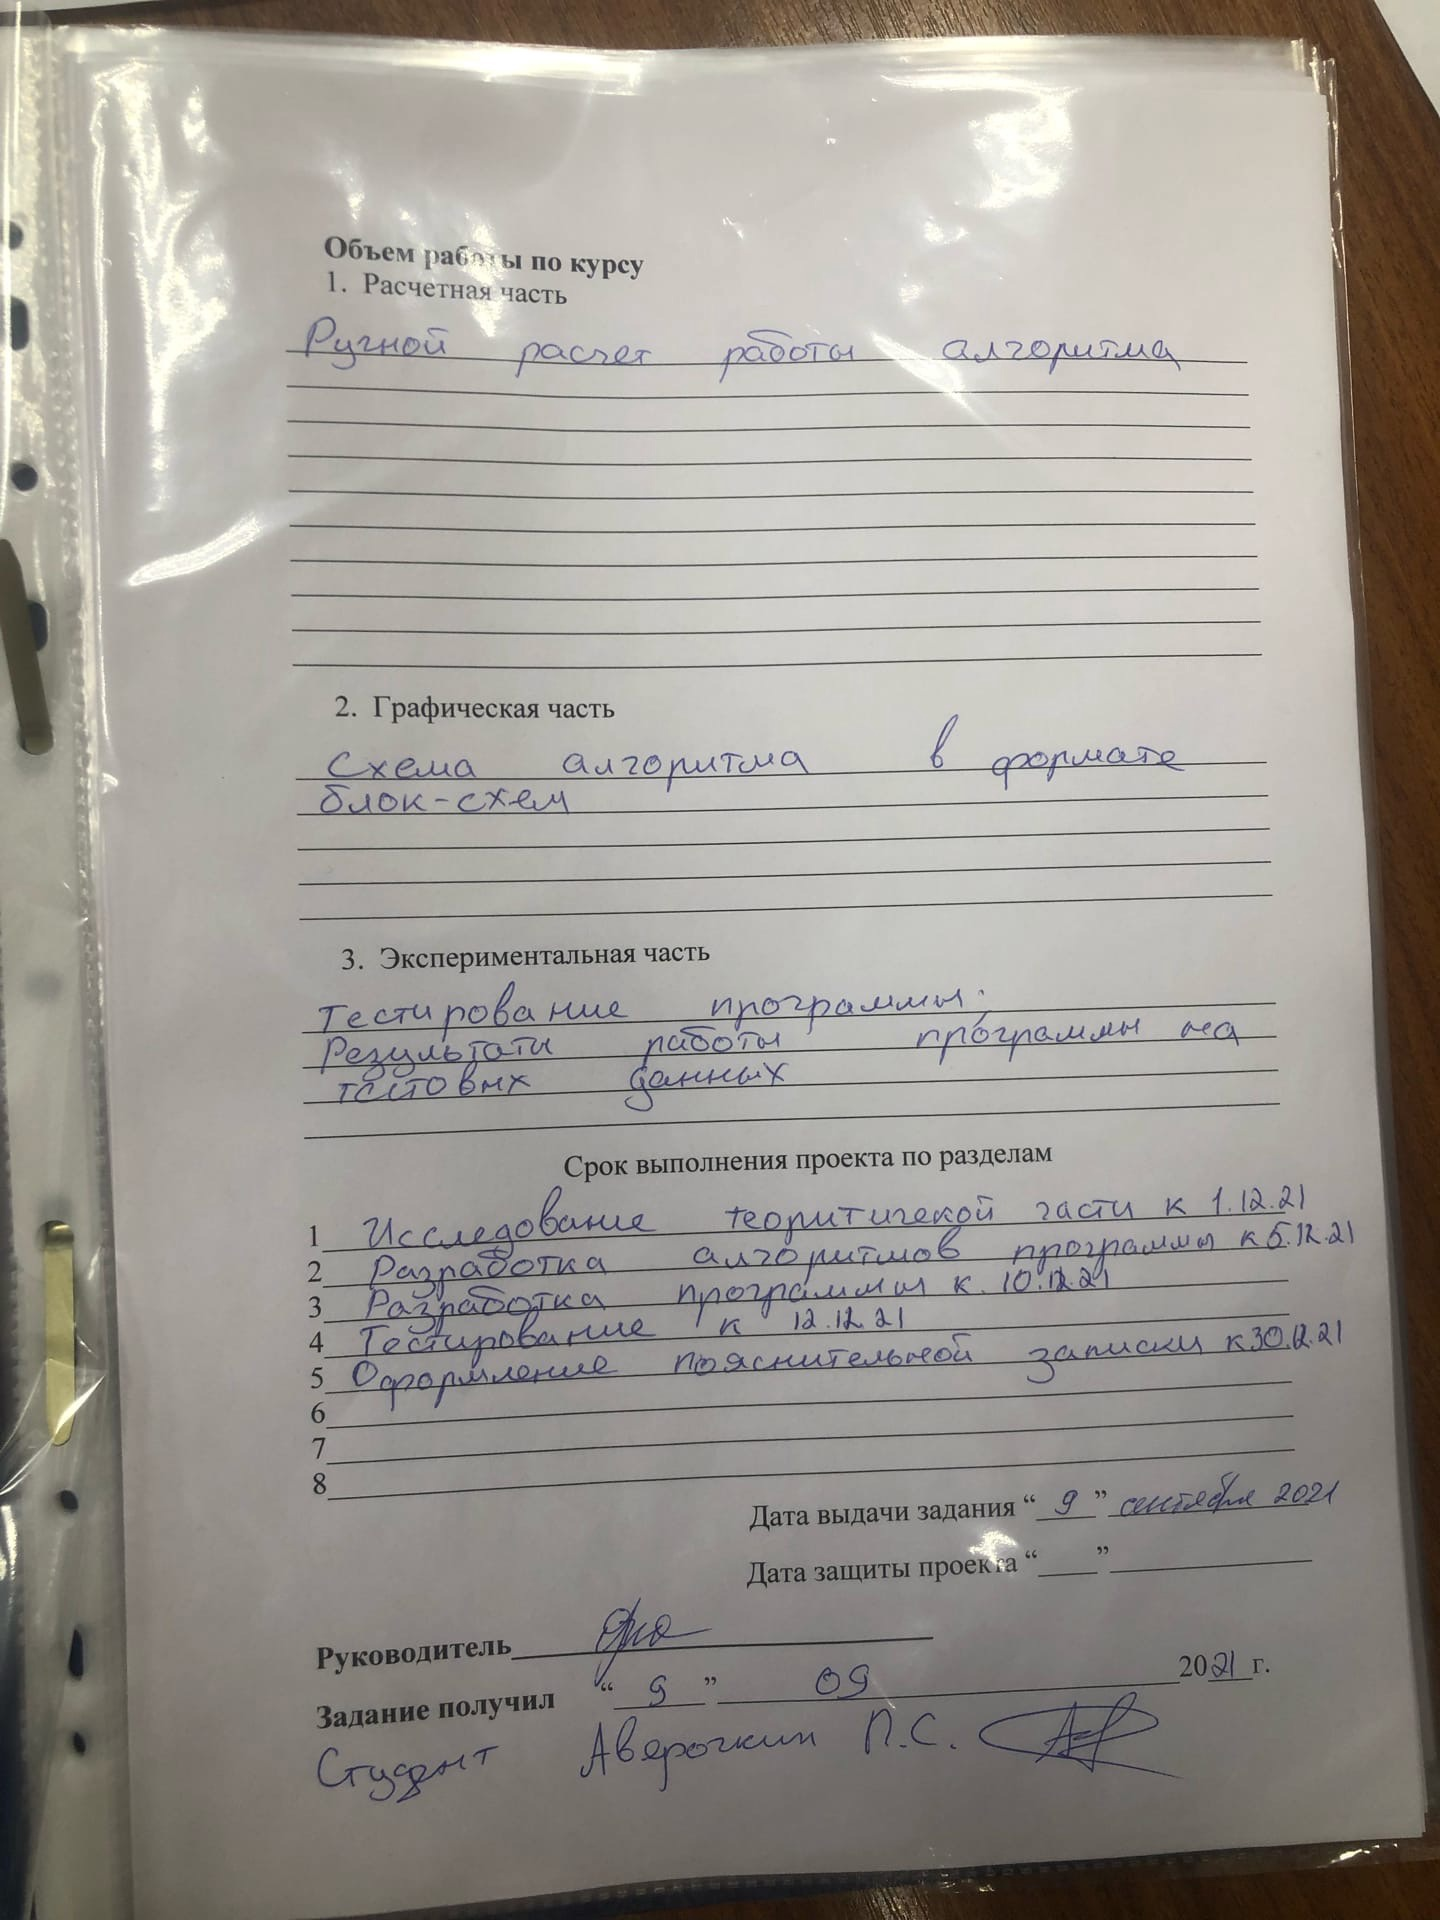 Объем работы по курсу
1. Расчетная часть
Ручной расчет работы алгоритма
2. Графическая часть
Схема алгоритма в формате
блок-схем
3. Экспериментальная часть
Тестирование программы;
Результаты работы программы на
тестовых данных
Срок выполнения проекта по разделам
1 Исследование теоритической части к 1.12.21
2 Разработка алгоритмов программы к 5.12.21
3 Разработка программы к 10.12.21
4 Тестирование к 12.12.21
5 Оформление пояснительной записки к 30.12.21
6
7
8
Дата выдачи задания “ 9 ” сентября 2021
Дата защиты проекта “ ”
Руководитель
Задание получил “ 9 ” 09 2021 г.
Студент Аверочкин П.С.